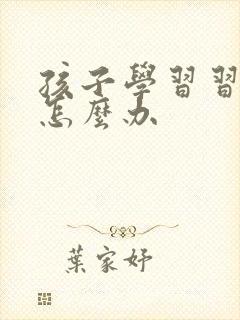 孩子學習習
怎麼办
葉家妤